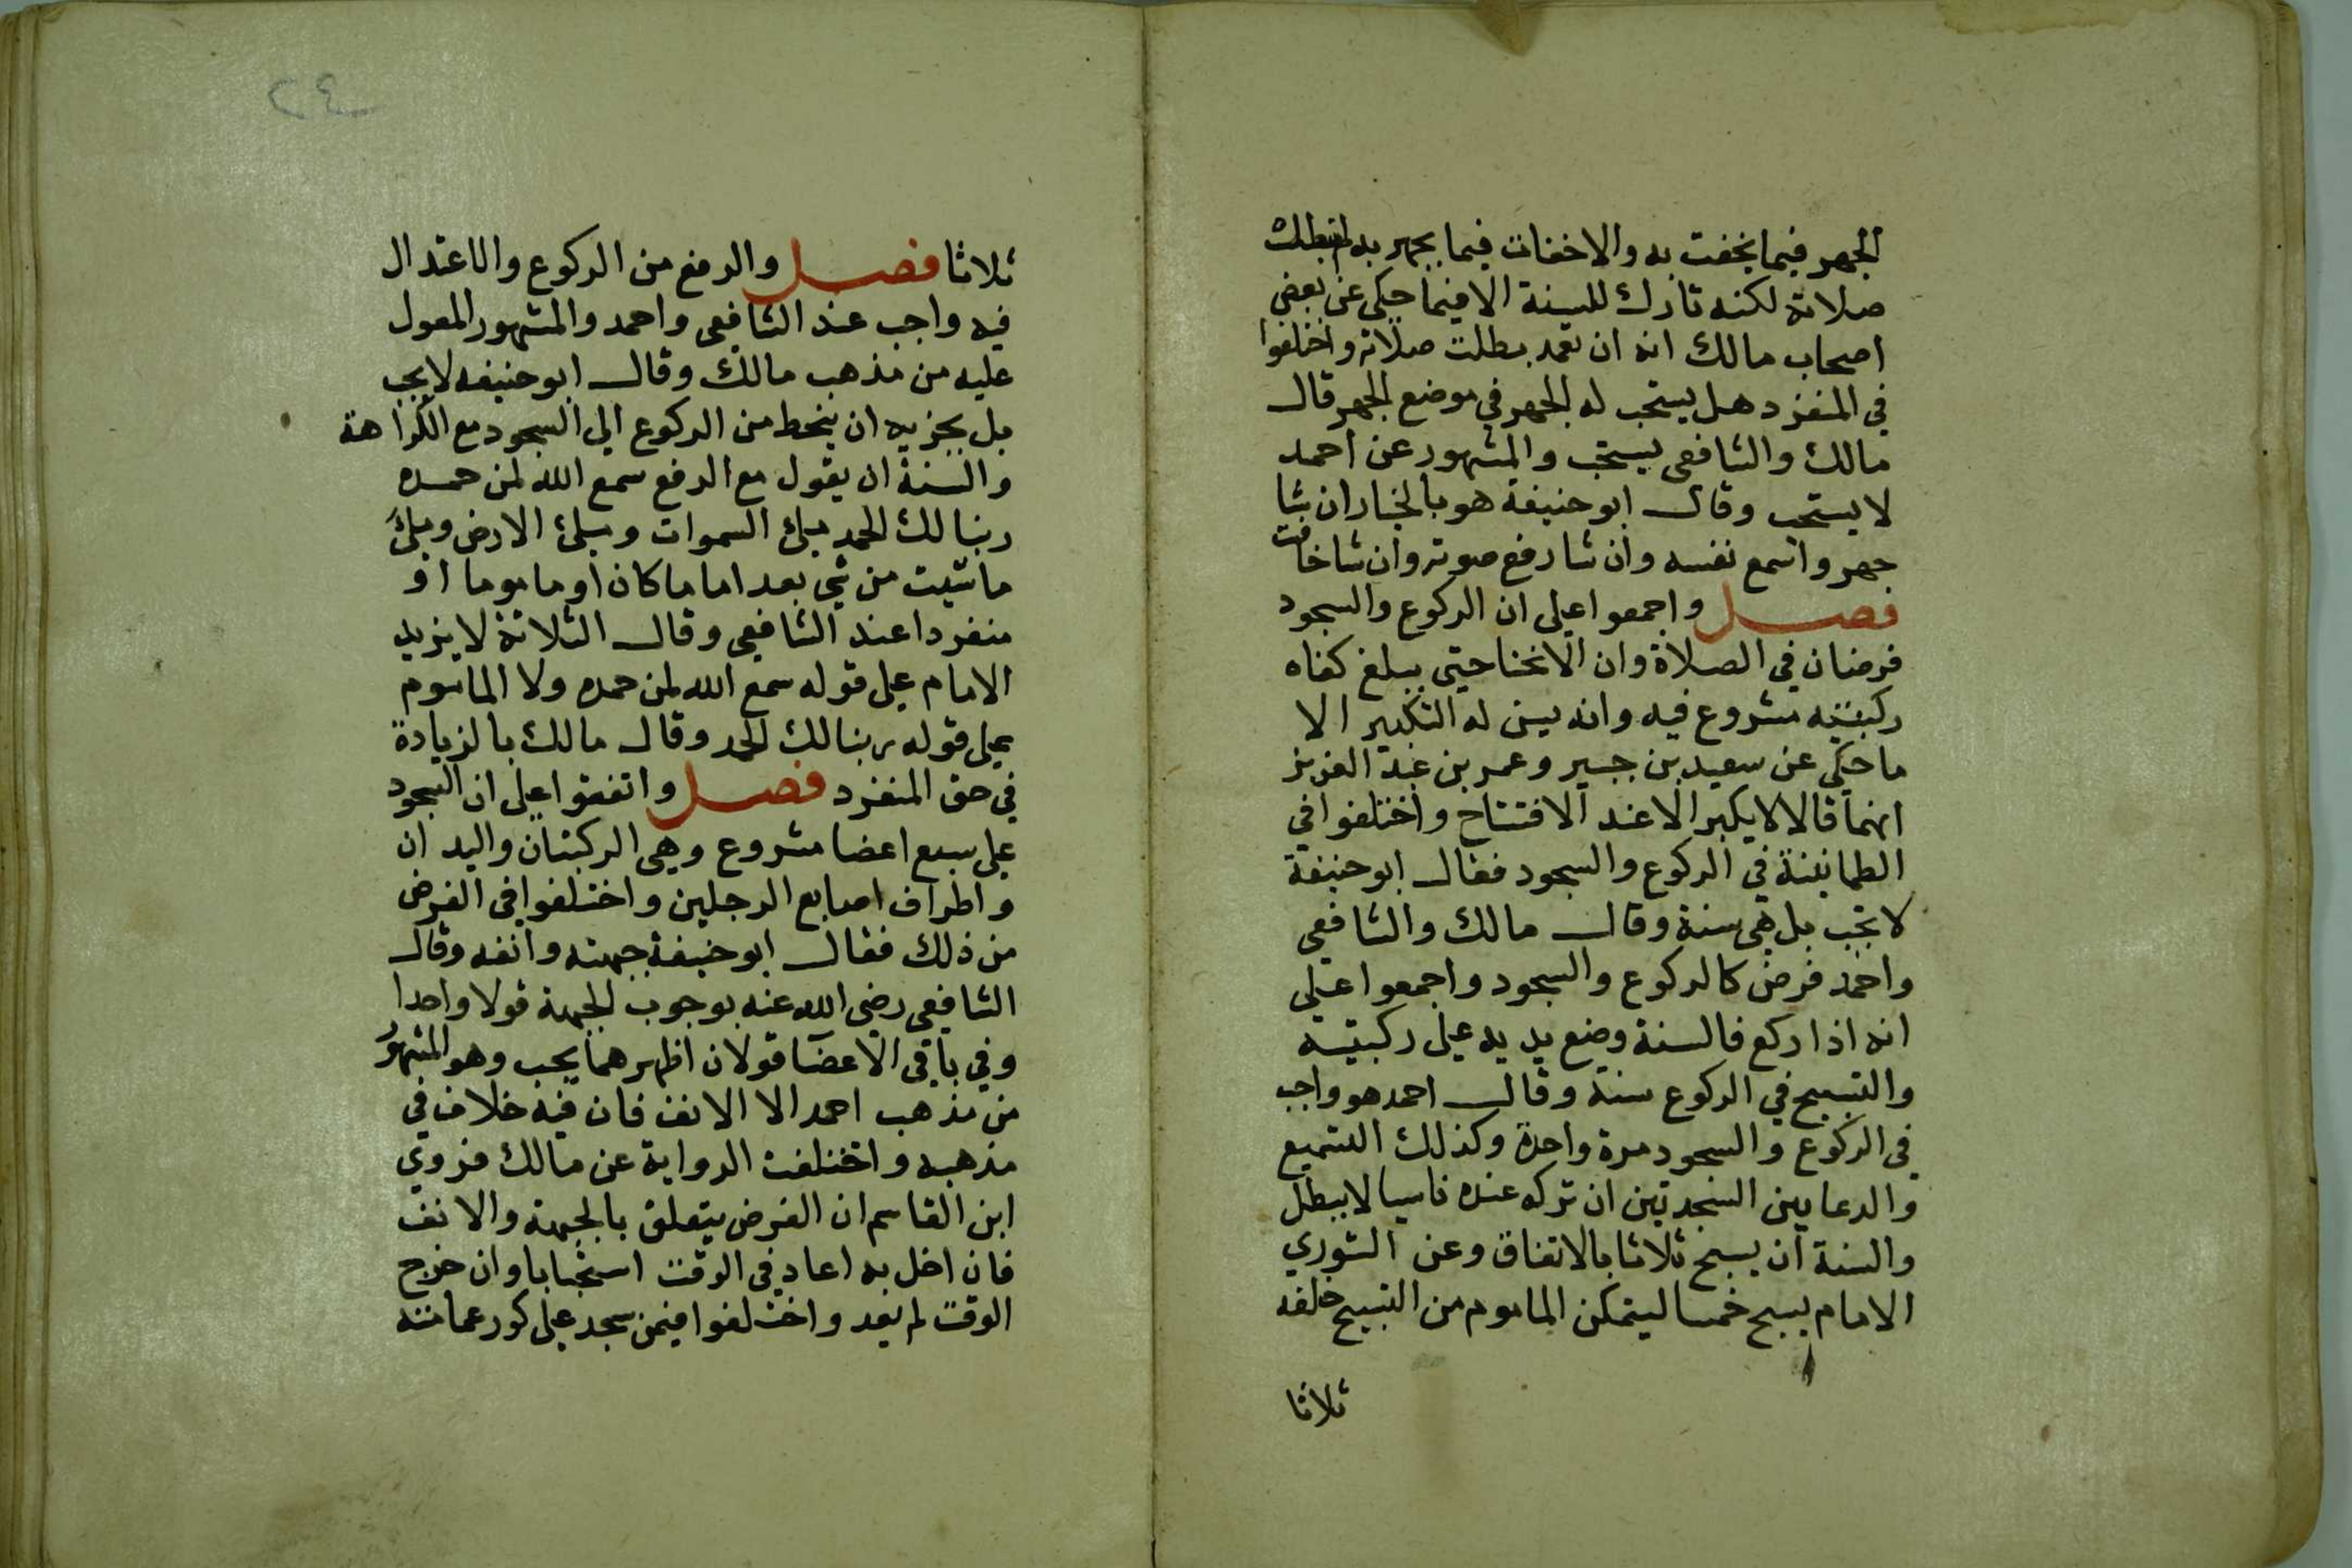 الجهر فيما يخفت به والاخفات فيما يجهر به لم تبطل
صلاته لكنه تارك للسنة الا فيما حكي عن بعض
اصحاب مالك انه ان تعمد بطلت صلاته واختلفوا
في المنفرد هل يستحب له الجهر في موضع الجهر قال
مالك والشافعي يستحب والمشهور عن احمد
لا يستحب وقال ابو حنيفة هو بالخيار ان شا
جهر واسمع نفسه وان شا رفع صوته وان شا خافت
فصل واجمعوا على ان الركوع والسجود
فرضان في الصلاة وان الانحنا حتى يبلغ كفاه
ركبتيه مشروع فيه وانه يسن له التكبير الا
ما حكي عن سعيد بن جبير وعمر بن عبد العزيز
انهما قالا لا يكبر الا عند الافتتاح واختلفوا في
الطمانينة في الركوع والسجود فقال ابو حنيفة
لا تجب بل هي سنة وقال مالك والشافعي
واحمد فرض كالركوع والسجود واجمعوا على
انه اذا ركع فالسنة وضع يديه على ركبتيه
والتسبيح في الركوع سنة وقال احمد هو واجب
في الركوع والسجود مرة واحدة وكذلك التسميع
والدعا بين السجدتين ان تركه عنده ناسيا لا يبطل
والسنة ان يسبح ثلاثا بالاتفاق وعن الثوري
الامام يسبح خمسا ليتمكن الماموم من التسبيح خلفه
ثلاثا
٢٤
ثلاثا فصل والرفع من الركوع والاعتدال
فيه واجب عند الشافعي واحمد والمشهور المعول
عليه من مذهب مالك وقال ابو حنيفه لا يجب
بل يجزيه ان ينحط من الركوع الى السجود مع الكراهة
والسنة ان يقول مع الرفع سمع الله لمن حمده
ربنا لك الحمد ملئ السموات وملئ الارض وملئ
ما شيت من شي بعد اماما كان او ماموما او
منفردا عند الشافعي وقال الثلاثة لا يزيد
الامام على قوله سمع الله لمن حمده ولا الماموم
على قوله ربنا لك الحمد وقال مالك بالزيادة
في حق المنفرد فصل واتفقوا على ان السجود
على سبع اعضا مشروع وهي الركبتان واليدان
واطراف اصابع الرجلين واختلفوا في الفرض
من ذلك فقال ابو حنيفة جبهته وانفه وقال
الشافعي رضي الله عنه بوجوب الجبهة قولا واحدا
وفي باقي الاعضا قولان اظهرهما يجب وهو المشهور
من مذهب احمد الا الانف فان فيه خلاف في
مذهبه واختلفت الرواية عن مالك فروي
ابن القاسم ان الفرض يتعلق بالجبهة والانف
فان اخل به اعاد في الوقت استحبابا وان خرج
الوقت لم يعد واختلفوا فيمن سجد على كور عمامته